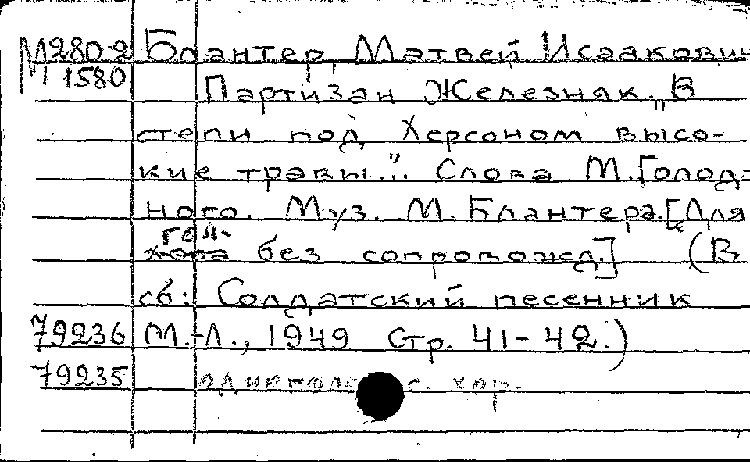 М2802 Блантер, Матвей Исаакович
М1580 Партизан Железняк. „В
степи под Херсоном высо-
кие травы..." Слова М. Голод-
ного. Муз. М. Блантера. [Для
гол.
хора без сопровожд.] (В
сб: Солдатский песенник
79236 М.-Л., 1949 Стр. 41-42.)
79235 хор.